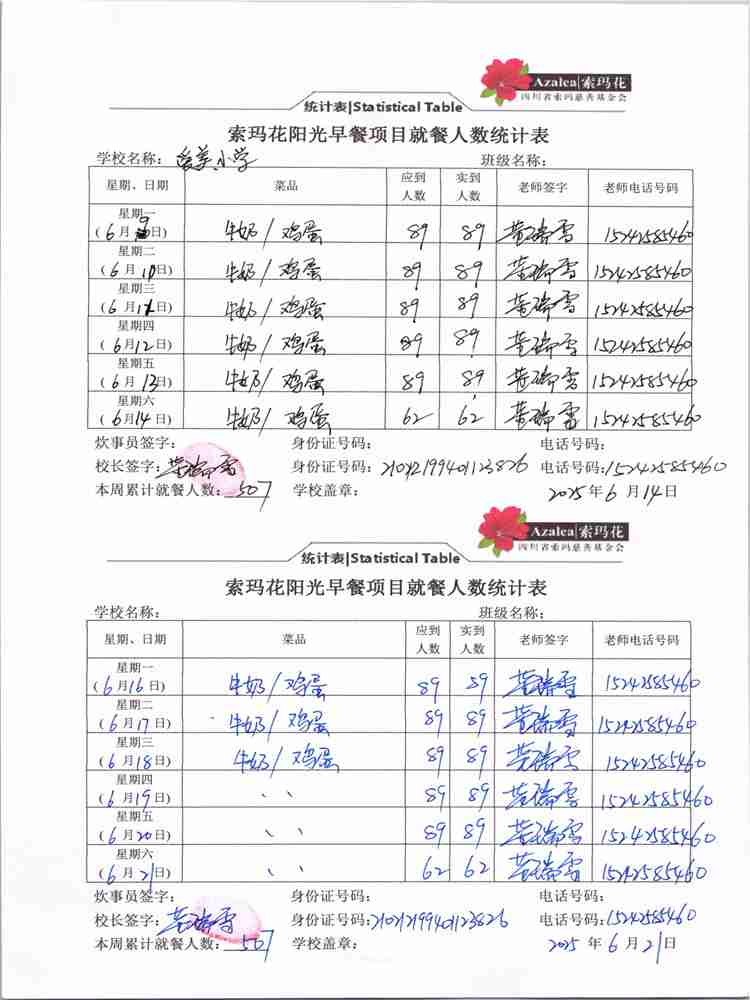 Azalea 索玛花
四川省索玛慈善基金会
统计表|Statistical Table
索玛花阳光早餐项目就餐人数统计表
学校名称： 小学 班级名称：
星期、日期 菜品 应到人数 实到人数 老师签字 老师电话号码
星期一
(6月9日) 牛奶/鸡蛋 89 89 15242585460
星期二
(6月10日) 牛奶/鸡蛋 89 89 15242585460
星期三
(6月11日) 牛奶/鸡蛋 89 89 15242585460
星期四
(6月12日) 牛奶/鸡蛋 89 89 15242585460
星期五
(6月13日) 牛奶/鸡蛋 89 89 15242585460
星期六
(6月14日) 牛奶/鸡蛋 62 62 15242585460
炊事员签字： 身份证号码： 电话号码：
校长签字： 身份证号码： 电话号码：15242585460
本周累计就餐人数：507 学校盖章： 2025年6月14日
Azalea 索玛花
四川省索玛慈善基金会
统计表|Statistical Table
索玛花阳光早餐项目就餐人数统计表
学校名称： 班级名称：
星期、日期 菜品 应到人数 实到人数 老师签字 老师电话号码
星期一
(6月16日) 牛奶/鸡蛋 89 89 15242585460
星期二
(6月17日) 牛奶/鸡蛋 89 89 15242585460
星期三
(6月18日) 牛奶/鸡蛋 89 89 15242585460
星期四
(6月19日) 、、 89 89 15242585460
星期五
(6月20日) 、、 89 89 15242585460
星期六
(6月21日) 、、 62 62 15242585460
炊事员签字： 身份证号码： 电话号码：
校长签字： 身份证号码： 电话号码：15242585460
本周累计就餐人数：507 学校盖章： 2025年6月21日